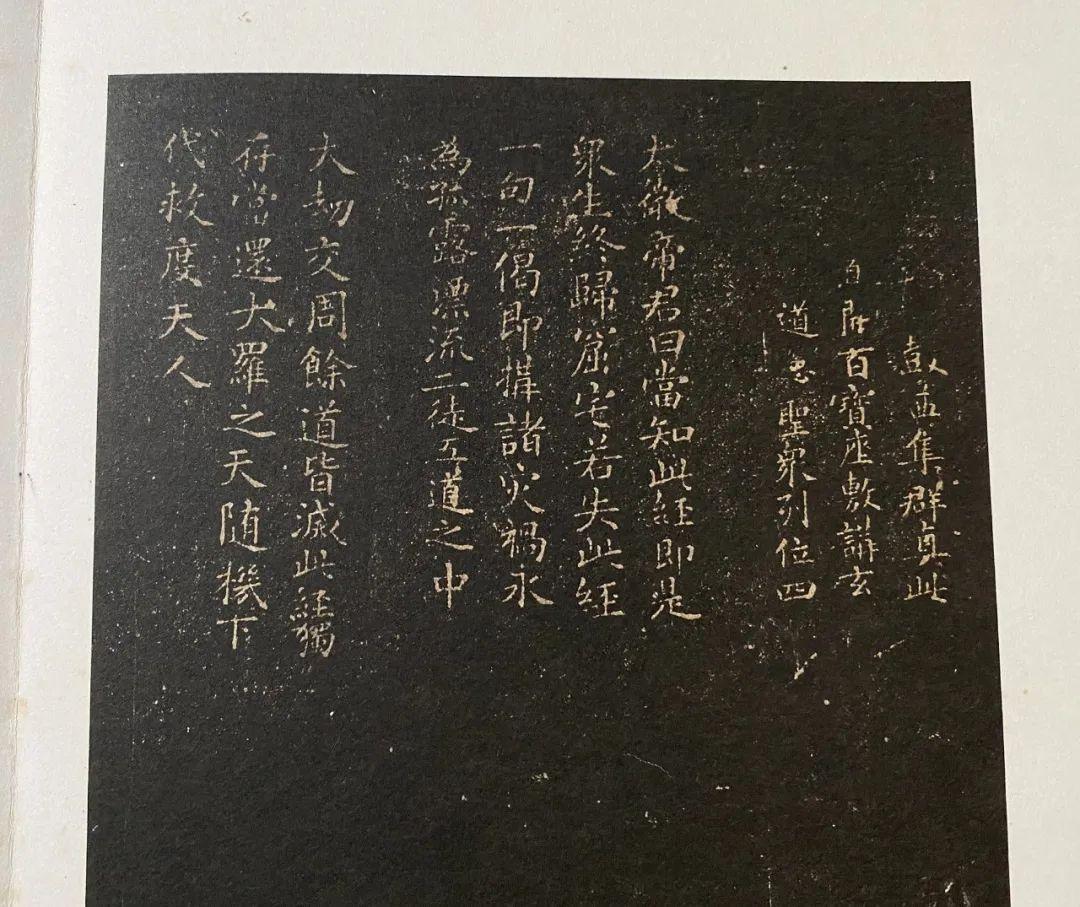 集群真此
百寶座敷講玄
道 聖眾列位四
太微帝君曰當知此經即是
眾生終歸窟宅若失此經
一句一偈即搆諸災禍永
為孤露漂流二徒五道之中
大劫交周餘道皆滅此經獨
存當還大羅之天随機下
代救度天人